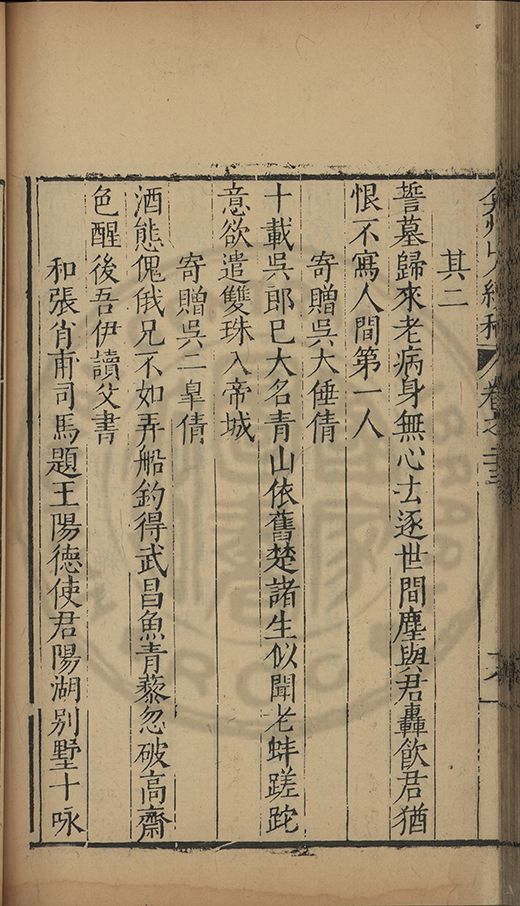 其二
誓墓歸來老病身無心去逐世間塵與君轟飲君猶
恨不寫人間第一人
寄贈吳大倕倩
十載吳郎巳大名青山依舊楚諸生似聞老蚌蹉跎
意欲遣雙珠入帝城
寄贈吳二臯倩
酒態傀俄兄不如弄船釣得武昌魚青藜忽破高齋
色醒後吾伊讀父書
和張肖甫司馬題王陽德使君陽湖別墅十咏